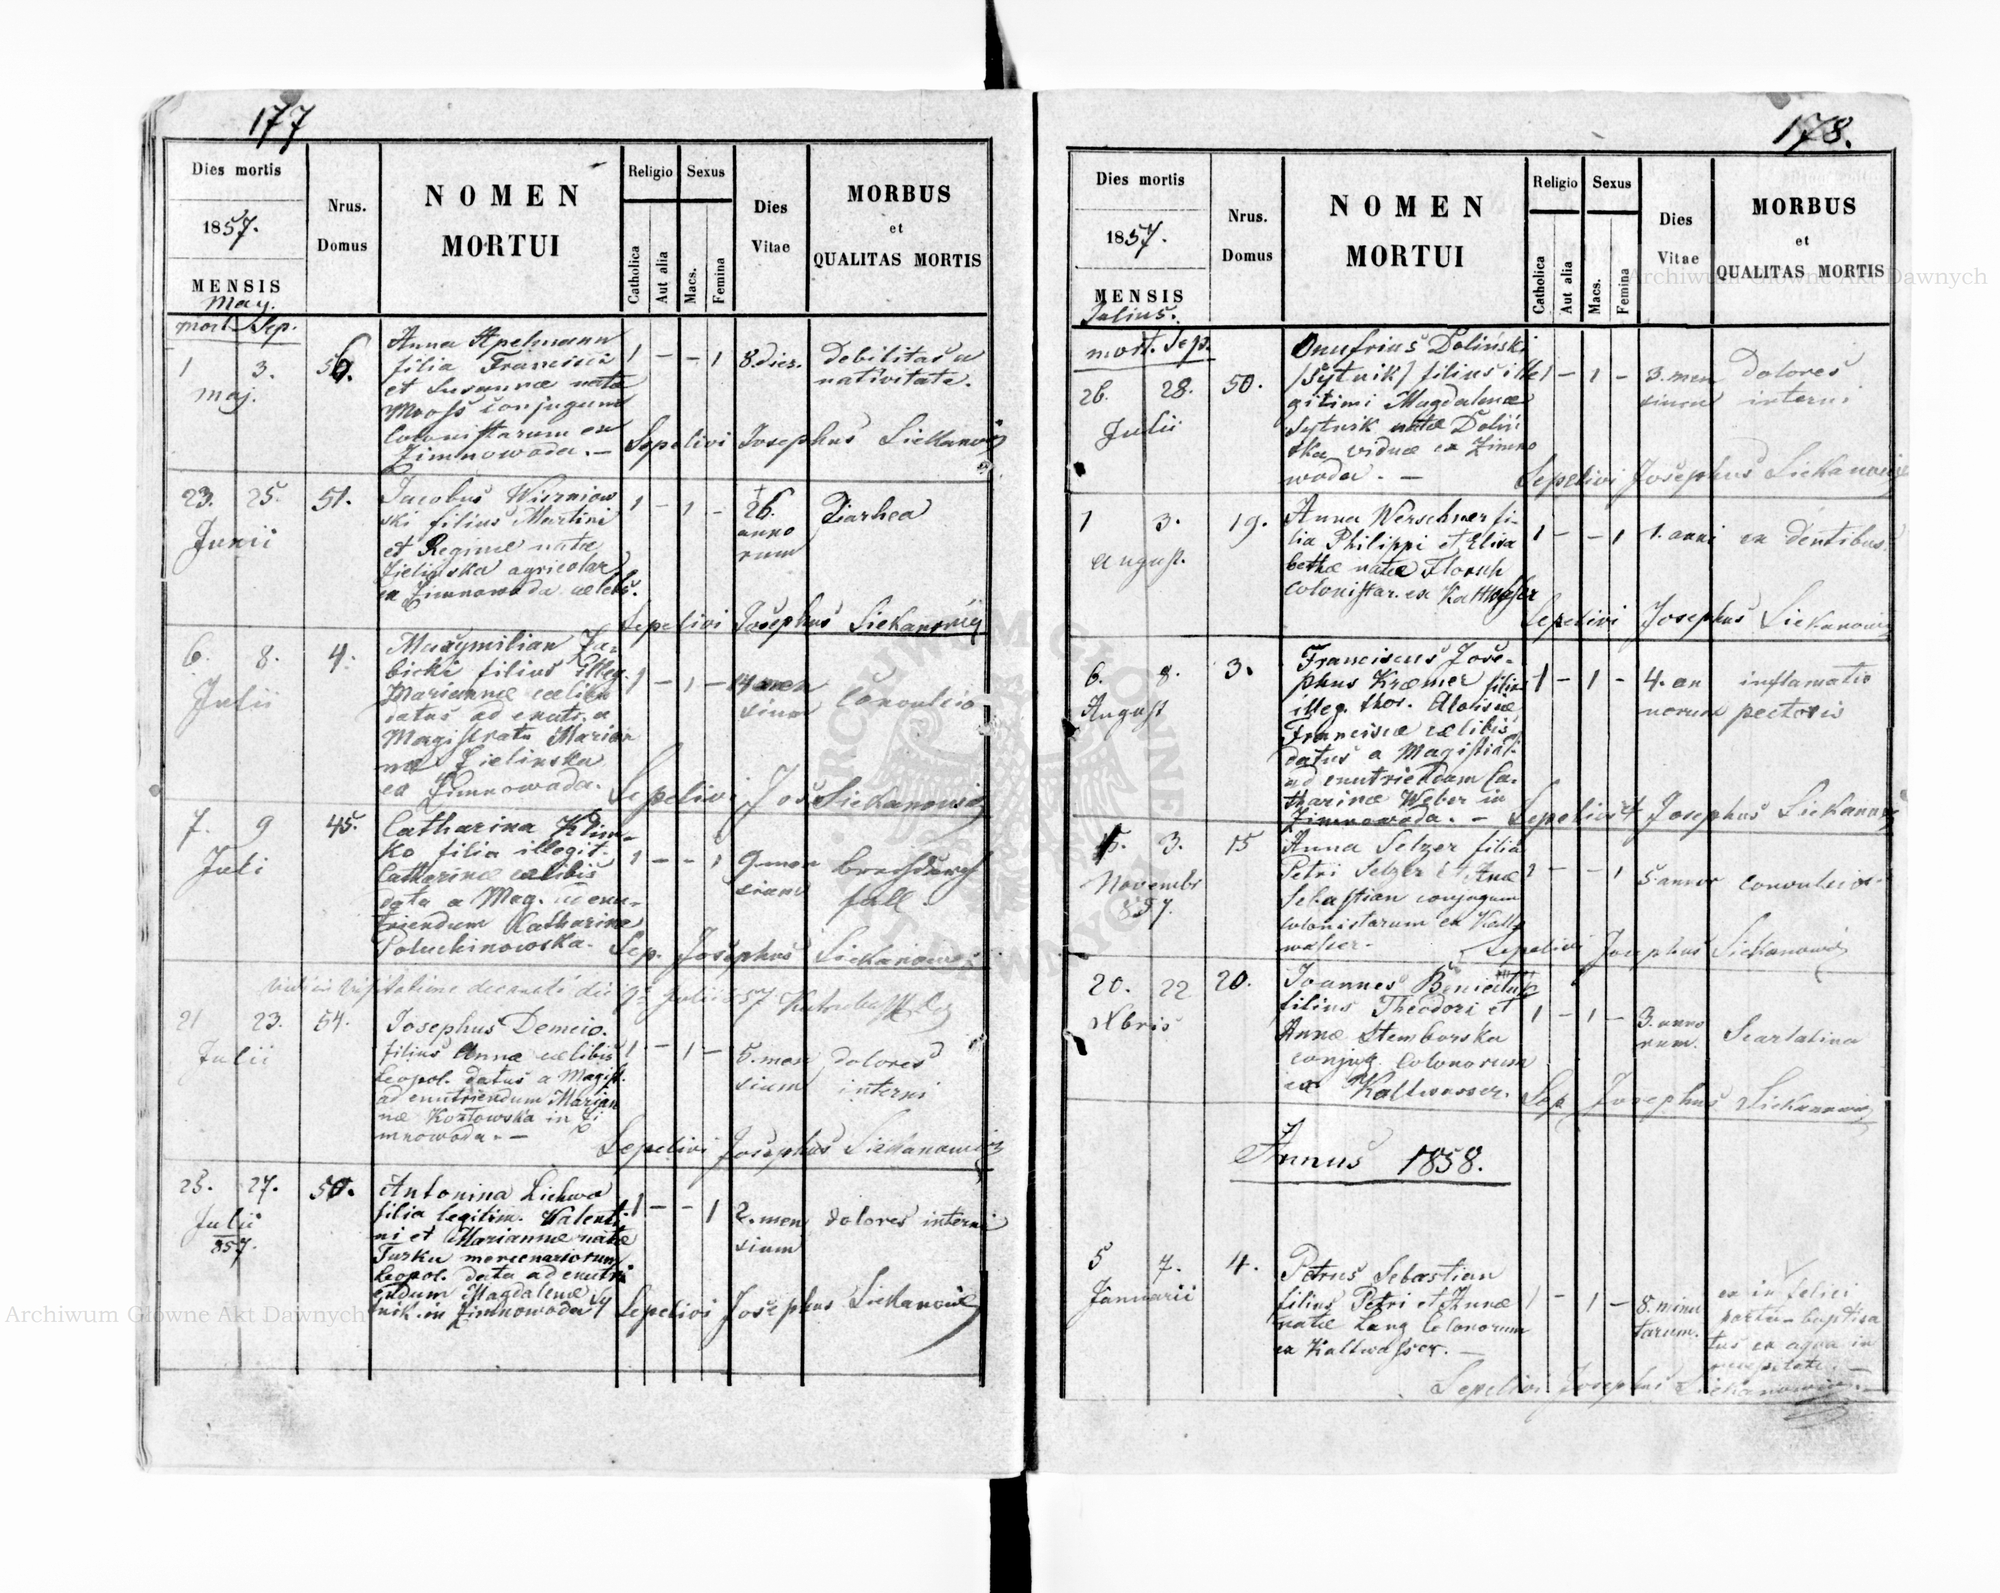 177
Dies mortis
1857.
MENSIS
May.
mort. Sep.
Nrus. Domus
NOMEN
MORTUI
Religio
Catholica
Aut alia
Sexus
Macs.
Femina
Dies
Vitae
MORBUS
et
QUALITAS MORTIS
1 3.
maj.
Anna Apelmann
filia Francisci
et Susannæ nata
conjugum
colonistarum ex
Zimnowoda. —
1 — — 1
8 dier.
Debilitas a
nativitate.
Sepelivi Josephus Siekanowicz
23. 25.
Junii
51.
Jacobus Wiszniow
ski filius Martini
et Reginæ natæ
Zielinska agricolar.
ex Zimnowoda cælebs.
1 — 1 —
26.
anno
rum
Diarhea
Sepelivi Josephus Siekanowicz
6. 8.
Julii
4.
Maxymilian Za-
bicki filius illeg.
Mariannæ cælibis
datus ad enutr. a
Magistratu Marian
næ Zielinska
ex Zimnowoda.
1 — 1 —
men
sium
Convulsio
Sepelivi Jos Siekanowicz
7. 9
Juli
45.
Catharina Klim-
ko filia illegit.
Catharinæ cælibis
data a Mag. ad enu-
triendum Catharinæ
1 — — 1
9 men
sium
brechdurch
fall.
Sep. Josephus Siekanowicz
visitatione decanali die 9ª Julii 857
21 23.
Julii
54.
Josephus Demcio.
filius Annæ cælibis
Leopol. datus a Magist.
ad enutriendum Marian
næ Kozłowska in Zi
mnowoda. —
1 — 1 —
5. men
sium
dolores
interni
Sepelivi Josephus Siekanowicz
25. 27.
Julii
857.
50.
Antonina Lichwa
filia legitim. Valenti
ni et Mariannæ natæ
Turka mercenariorum
Leopol. data ad enutri
endum Magdalenæ Sy
tnik in Zimnowoda
1 — — 1
2. men
sium
dolores interni
Sepelivi Josephus Siekanowicz
178.
Dies mortis
1857.
MENSIS
Julius.
mort. Sep.
Nrus. Domus
NOMEN
MORTUI
Religio
Catholica
Aut alia
Sexus
Macs.
Femina
Dies
Vitae
MORBUS
et
QUALITAS MORTIS
26. 28.
Julii
50.
Onufrius Doliński
/Sytnik/ filius ille
gitimi Magdalenæ
Sytnik natæ Doliń
ska viduæ ex Zimno
woda. —
1 — 1 —
3. men
sium
dolores
interni
Sepelivi Josephus Siekanowicz
1 3.
August.
19.
Anna Werschner fi-
lia Philippi et Elisa
bethæ natæ
colonistar. ex Kaltwasser
1 — — 1
1. anni
ex dentibus.
Sepelivi Josephus Siekanowicz
6. 8.
August
3.
Franciscus Jose-
phus Kræmer filius
illeg. thor. Aloisiæ
Franciscæ cælibis
datus a Magistrat.
ad enutriendum Ca-
tharinæ Weber in
Zimnowoda. —
1 — 1 —
4. an
norum
inflamatio
pectoris
Sepelivit Josephus Siekanowicz
3.
Novembr
857.
15
Anna Selzer filia
Petri Selzer et Anæ
Sebastian conjugum
colonistarum ex Kalt
wasser.
1 — — 1
5. annor
convulsio.
Sepelivi Josephus Siekanowicz
20. 22
Xbris
20.
Joannes
filius Theodori et
Annæ Stemborska
conjug. colonorum
ex Kaltwasser.
1 — 1 —
3. anno
rum.
Scarlatina
Sep Josephus Siekanowicz
Annus 1858.
5 7.
Januarii
4.
Petrus Sebastian
filius Petri et Annæ
natæ Lang Colonorum
ex Kaltwasser. —
1 — 1 —
8. minu
tarum.
ex in felici
partu — baptisa
tus ex aqua in
necessitate. —
Sepelivi Josephus Siekanowicz
Archiwum Główne Akt Dawnych
Archiwum Główne Akt Dawnych
ARCHIWUM GŁÓWNE AKT DAWNYCH